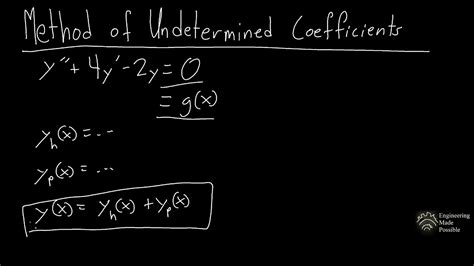 Method of Undetermined Coefficients
y'' + 4y' - 2y = 0
= g(x)
y_h(x) = ...
y_p(x) = ...
y(x) = y_h(x) + y_p(x)
Engineering
Made
Possible